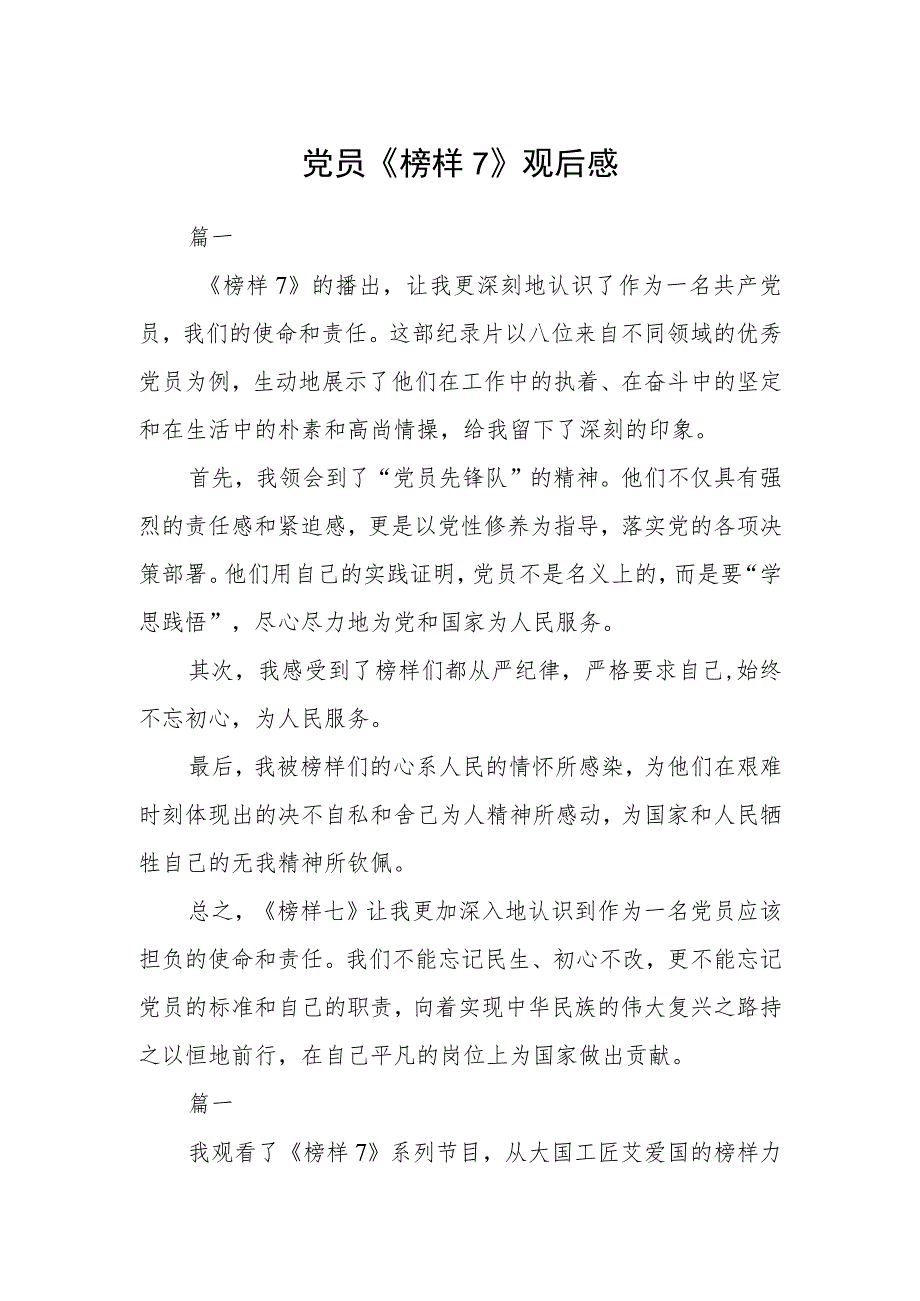 党员《榜样7》观后感
篇一
《榜样7》的播出，让我更深刻地认识了作为一名共产党
员，我们的使命和责任。这部纪录片以八位来自不同领域的优秀
党员为例，生动地展示了他们在工作中的执着、在奋斗中的坚定
和在生活中的朴素和高尚情操，给我留下了深刻的印象。
首先，我领会到了“党员先锋队”的精神。他们不仅具有强
烈的责任感和紧迫感，更是以党性修养为指导，落实党的各项决
策部署。他们用自己的实践证明，党员不是名义上的，而是要“学
思践悟”，尽心尽力地为党和国家为人民服务。
其次，我感受到了榜样们都从严纪律，严格要求自己,始终
不忘初心，为人民服务。
最后，我被榜样们的心系人民的情怀所感染，为他们在艰难
时刻体现出的决不自私和舍己为人精神所感动，为国家和人民牺
牲自己的无我精神所钦佩。
总之，《榜样七》让我更加深入地认识到作为一名党员应该
担负的使命和责任。我们不能忘记民生、初心不改，更不能忘记
党员的标准和自己的职责，向着实现中华民族的伟大复兴之路持
之以恒地前行，在自己平凡的岗位上为国家做出贡献。
篇一
我观看了《榜样7》系列节目，从大国工匠艾爱国的榜样力